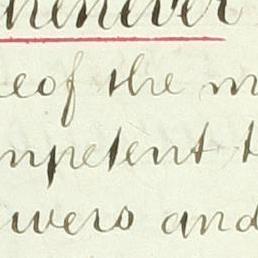 henever
eof the m
mpetent t
wers and